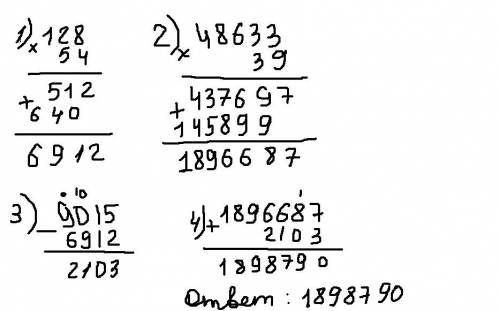 1) × 128
54
+ 512
640
6912
2) × 48633
39
+ 437697
145899
1896687
3) 10
− 9015
6912
2103
4) 1
+ 1896687
2103
1898790
Ответ : 1898790